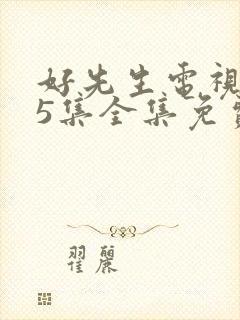 好先生電視
5集全集免費
翟麗